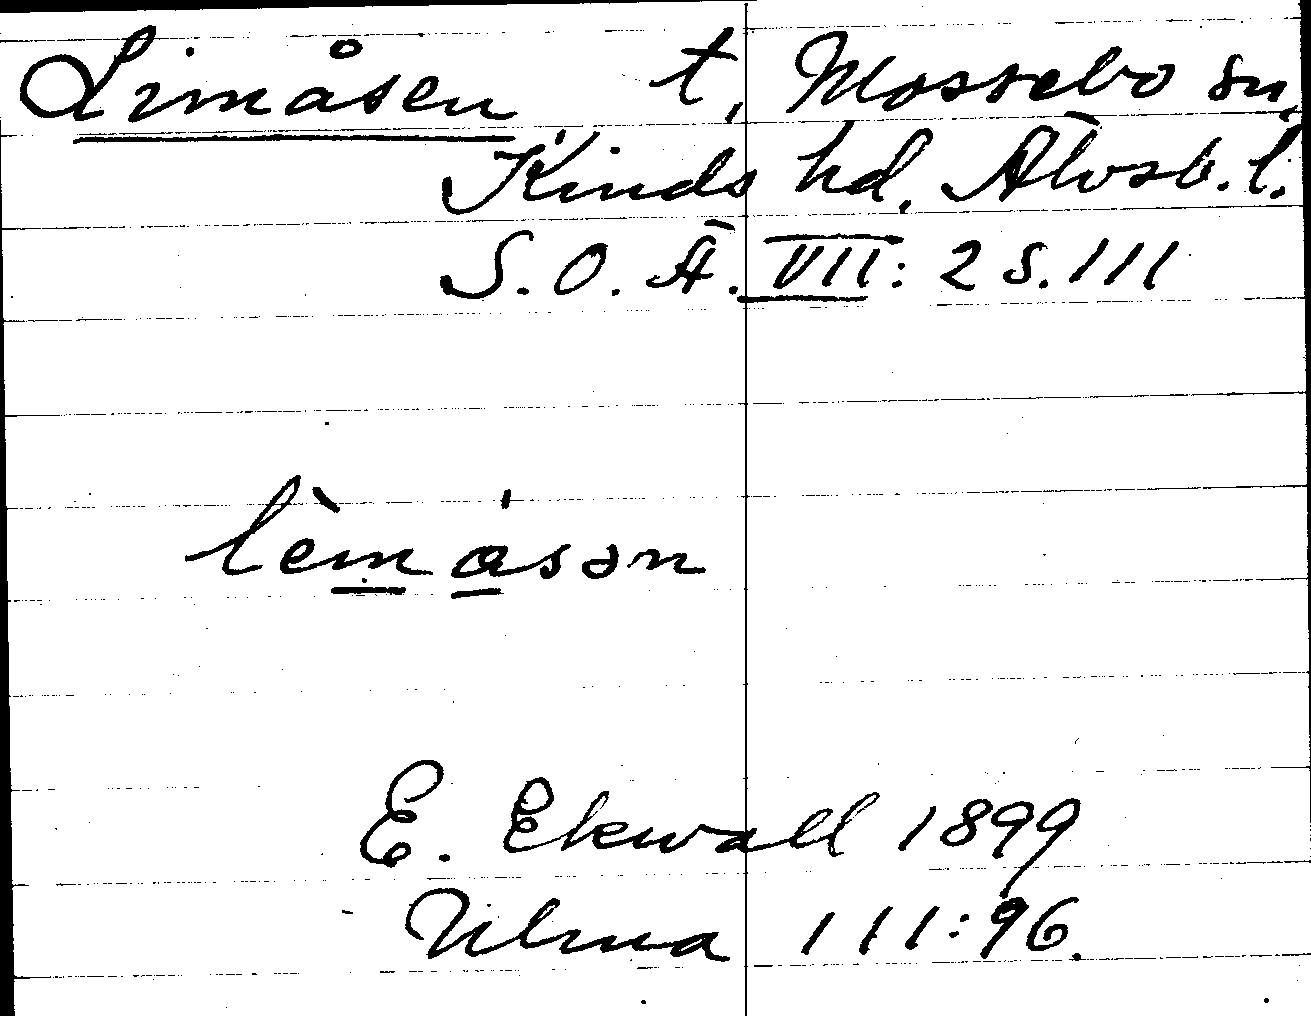 Limåsen t, Mossebo sn,
Kinds hd. Älvsb. l.
S. O. Ä. VII: 2 s. 111
lèmåsən
E. Ekwall 1899
Ulma 111:96.